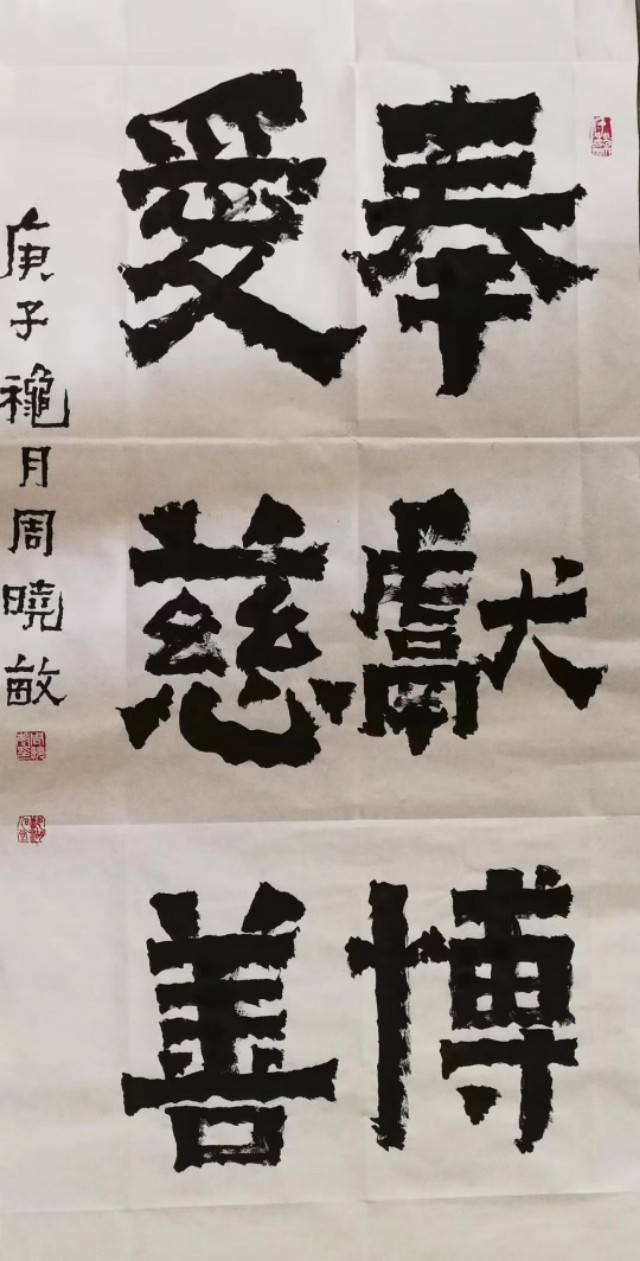 奉獻博
愛慈善
庚子龝月周曉敏